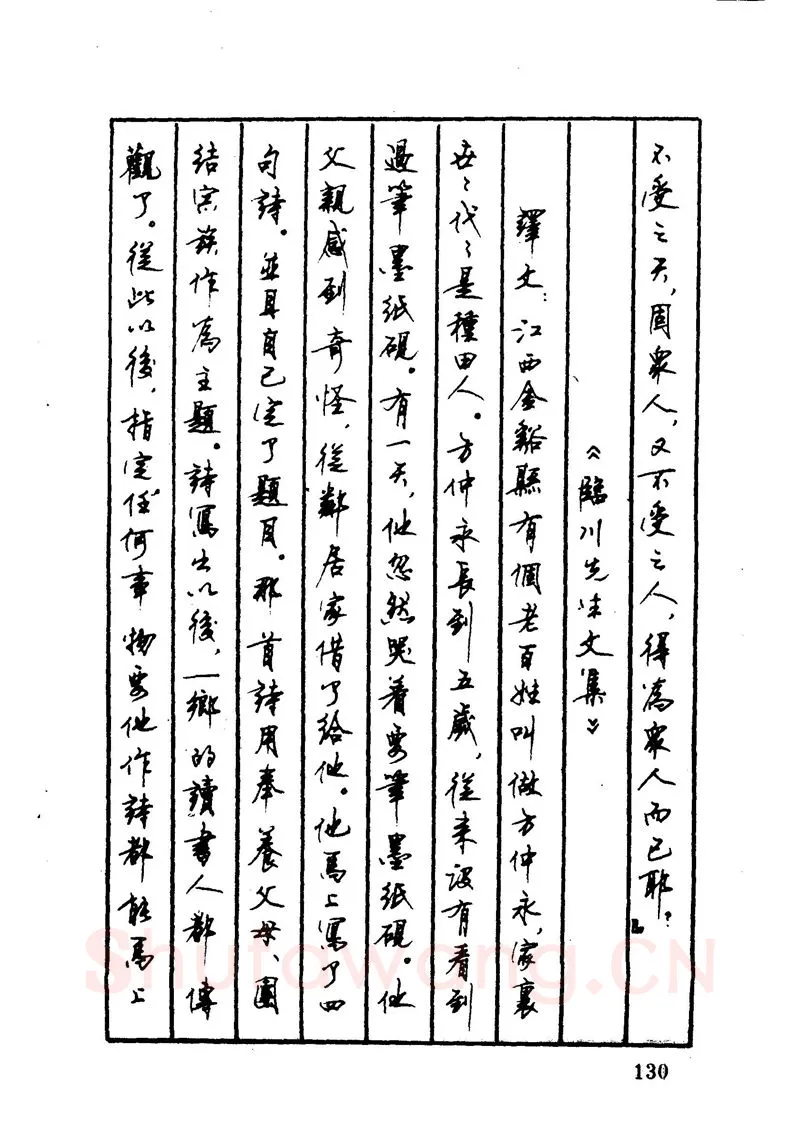 不受之天，固眾人，又不受之人，得為眾人而已耶？」
《臨川先生文集》
譯文：江西金谿縣有個老百姓叫做方仲永，家裏
世々代々是種田人。方仲永長到五歲，從来沒有看到
過筆墨紙硯。有一天，他忽然哭着要筆墨紙硯。他
父親感到奇怪，從鄰居家借了給他。他馬上寫了四
句詩。並且自己定了題目。那首詩用奉養父母、團
结宗族作為主題。詩寫出以後，一鄉的讀書人都傳
觀了。從此以後，指定任何事物要他作詩都能馬上
130
Shufawang.CN